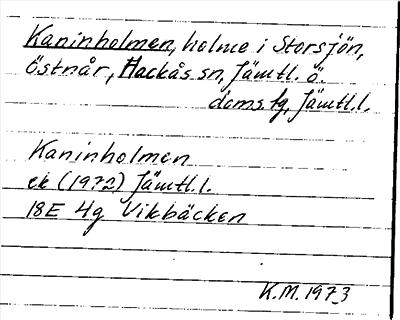 Kaninholmen, holme i Storsjön,
Östnår, Hackås sn, Jämtl. ö.
doms. tg, Jämtl. l.
Kaninholmen
ek (1972) Jämtl. l.
18E 4g Vikbäcken
K.M. 1973